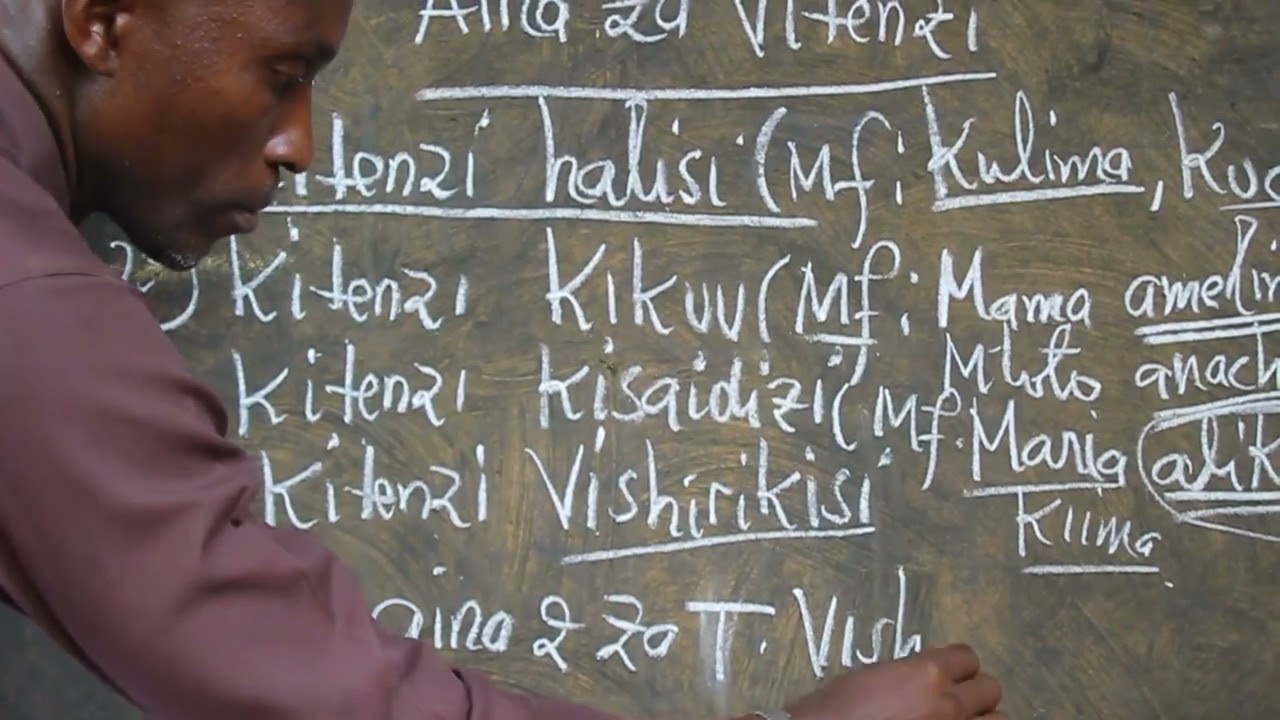 Aina za Vitenzi
itenzi halisi (Mf: Kulima, Kuc
2) Kitenzi Kikuu (Mf: Mama amelim
Mtoto anach
Kitenzi Kisaidizi (Mf: Maria alik
Kitenzi Vishirikisi Kiima
aina 2 za T. Vish